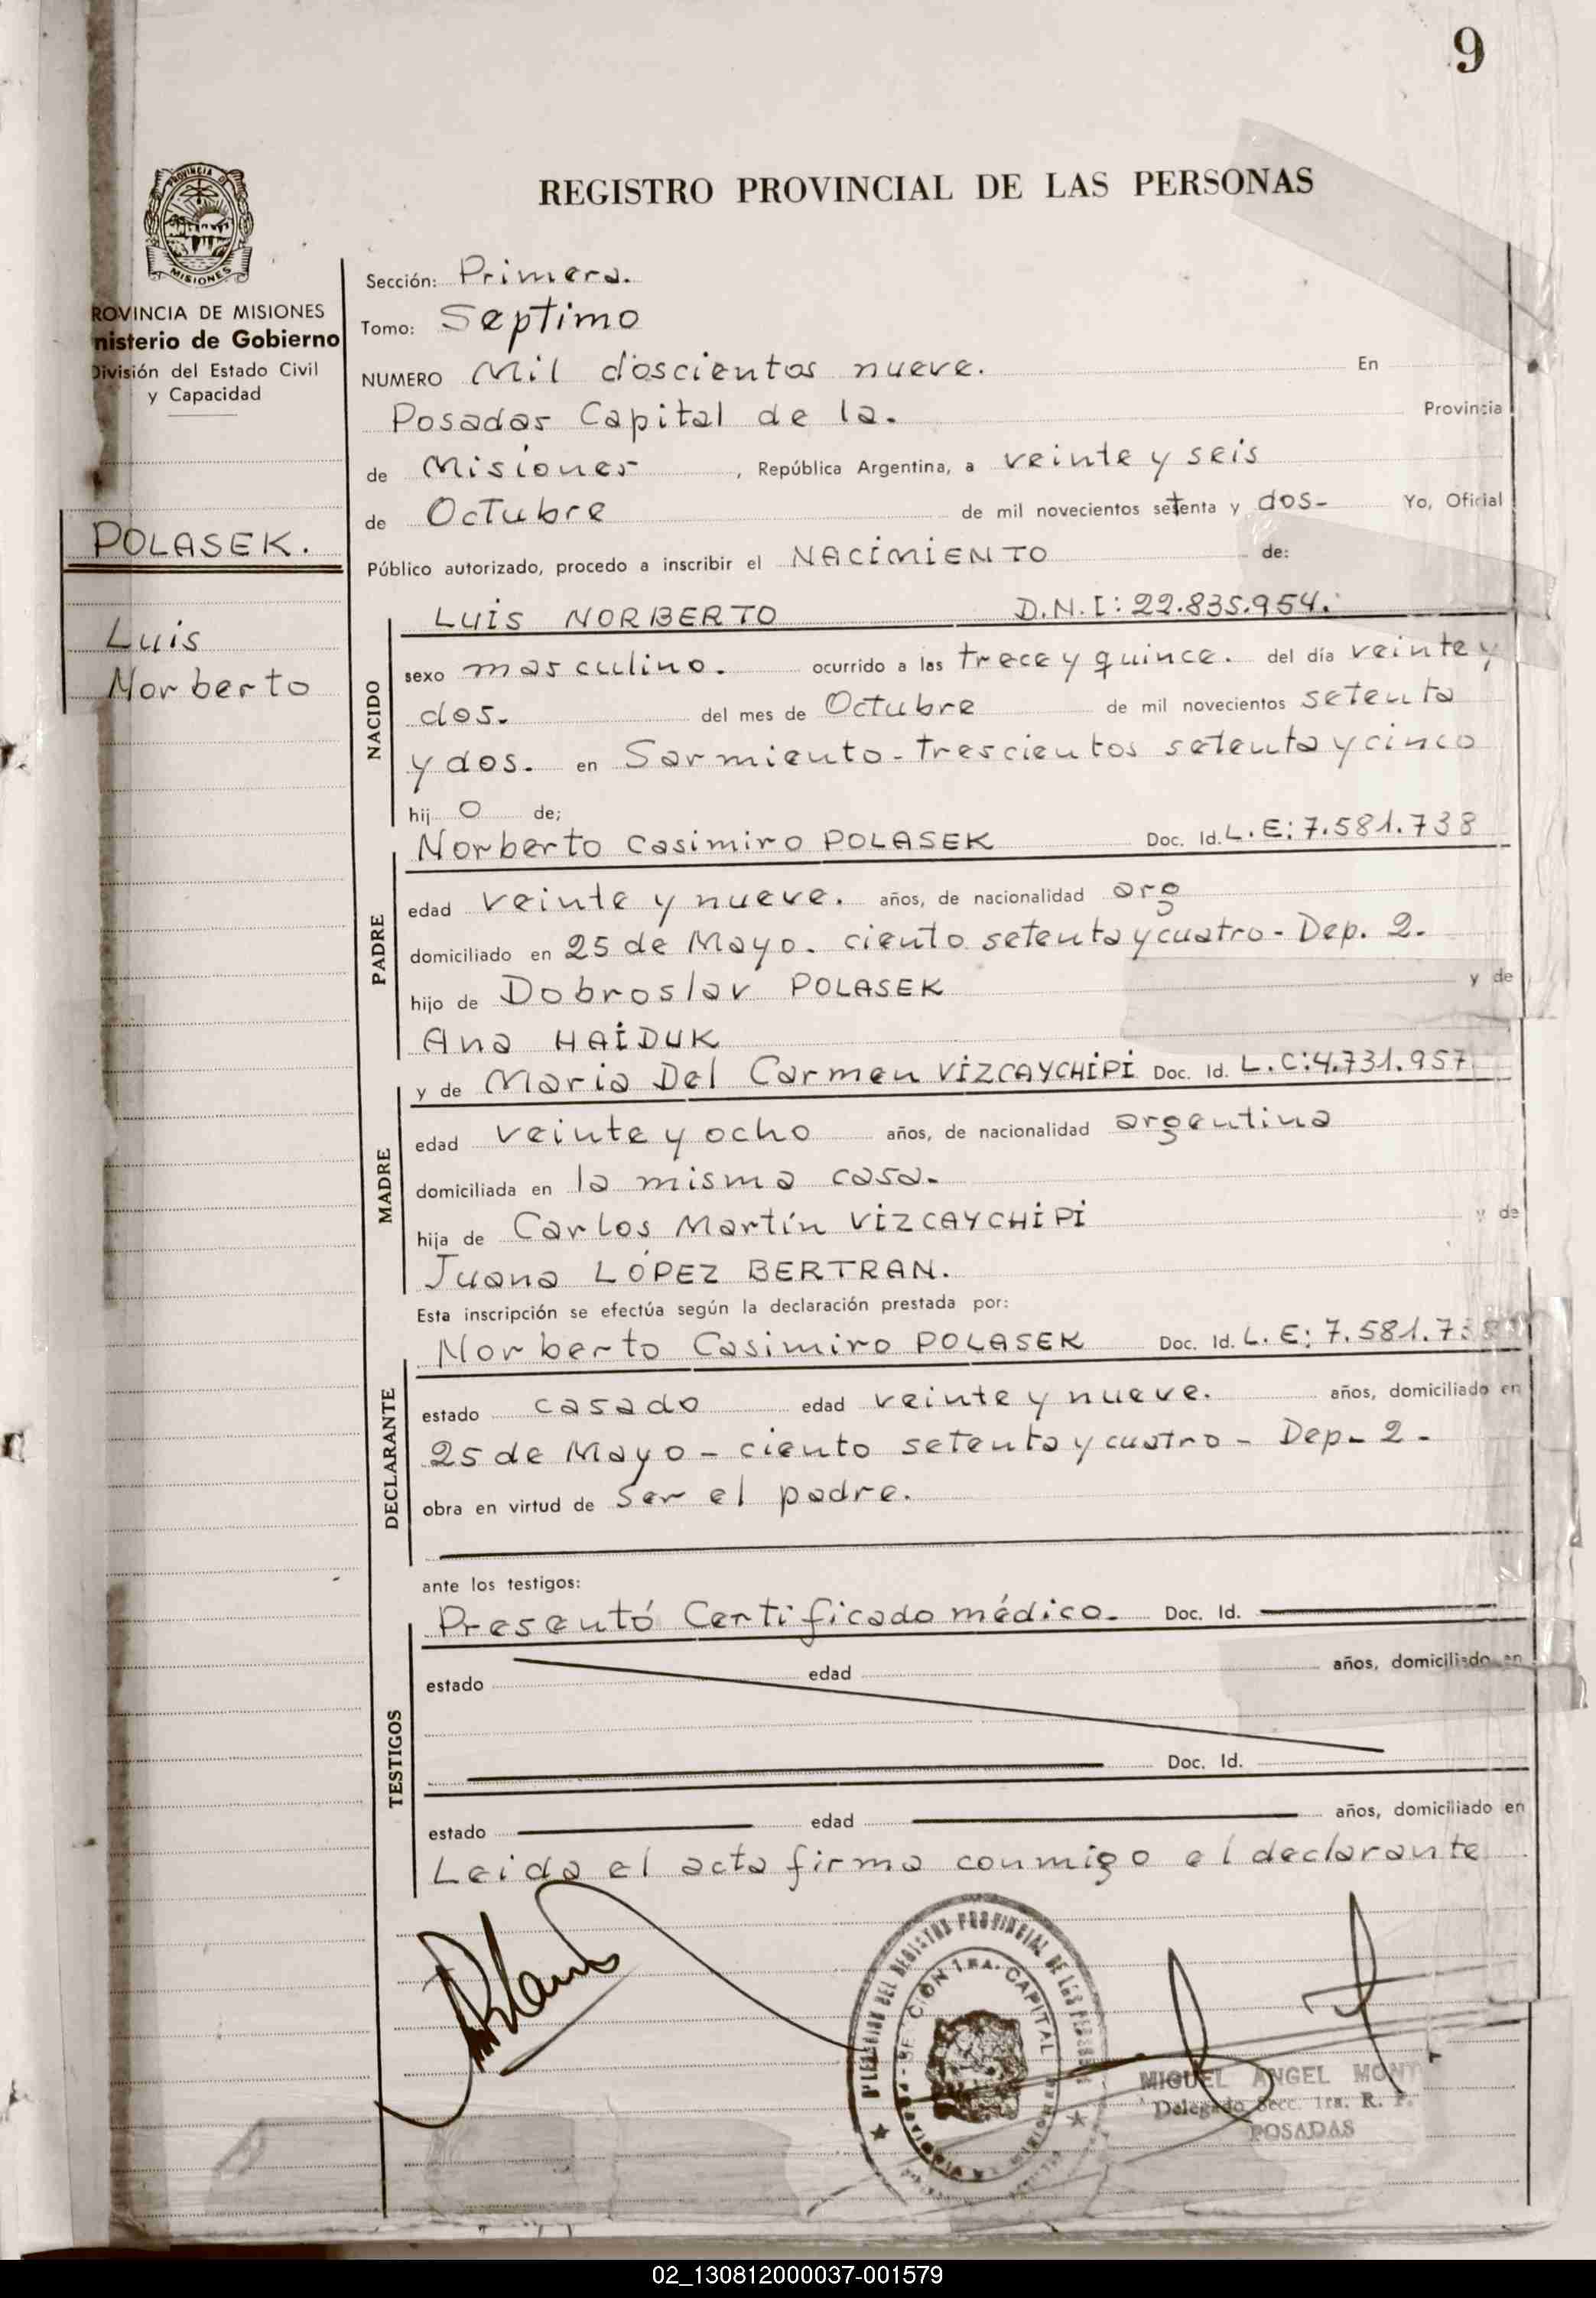 9
PROVINCIA DE
MISIONES
REGISTRO PROVINCIAL DE LAS PERSONAS
ROVINCIA DE MISIONES
nisterio de Gobierno
División del Estado Civil
y Capacidad
POLASEK.
Luis
Norberto
Sección: Primera.
Tomo: Septimo
NUMERO Mil doscientos nueve. En
Posadas Capital de la. Provincia
de Misiones, República Argentina, a veinte y seis
de Octubre de mil novecientos setenta y dos- Yo, Oficial
Público autorizado, procedo a inscribir el NACIMIENTO de:
NACIDO
LUIS NORBERTO D.N.I: 22.835.954.
sexo masculino. ocurrido a las trece y quince. del día veinte y
dos. del mes de Octubre de mil novecientos setenta
y dos. en Sarmiento - trescientos setenta y cinco
hij o de;
PADRE
Norberto Casimiro POLASEK Doc. Id. L. E: 7.581.738
edad veinte y nueve. años, de nacionalidad arg
domiciliado en 25 de Mayo. ciento setenta y cuatro - Dep. 2.
hijo de Dobroslav POLASEK y de
Ana HAIDUK
MADRE
y de Maria Del Carmen VIZCAYCHIPI Doc. Id. L.C: 4.731.957
edad veinte y ocho años, de nacionalidad argentina
domiciliada en la misma casa.
hija de Carlos Martín VIZCAYCHIPI y de
Juana LÓPEZ BERTRAN.
Esta inscripción se efectúa según la declaración prestada por:
DECLARANTE
Norberto Casimiro POLASEK Doc. Id. L. E: 7.581.738
estado casado edad veinte y nueve. años, domiciliado en
25 de Mayo - ciento setenta y cuatro - Dep- 2 -
obra en virtud de Ser el padre.
ante los testigos:
TESTIGOS
Presentó Certificado médico. Doc. Id.
estado edad años, domiciliado en
Doc. Id.
estado edad años, domiciliado en
Leida el acta firma conmigo el declarante
DEL REGISTRO PROVINCIAL DE LAS PERSONAS
SECCION 1RA. CAPITAL
MIGUEL ANGEL MONT
Delegado Secc. 1ra. R. P.
POSADAS
02_130812000037-001579